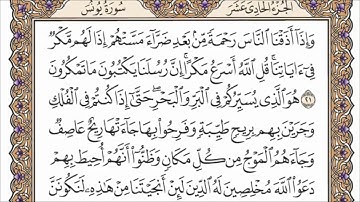 الجزء الحادي عشر
سورة يونس
وَإِذَا أَذَقْنَا النَّاسَ رَحْمَةً مِّنۢ بَعْدِ ضَرَّاءَ مَسَّتْهُمْ إِذَا لَهُم مَّكْرٌ
فِىٓ ءَايَاتِنَا ۚ قُلِ اللَّهُ أَسْرَعُ مَكْرًا ۚ إِنَّ رُسُلَنَا يَكْتُبُونَ مَا تَمْكُرُونَ
٢١ هُوَ الَّذِى يُسَيِّرُكُمْ فِى الْبَرِّ وَالْبَحْرِ ۖ حَتَّىٰٓ إِذَا كُنتُمْ فِى الْفُلْكِ
وَجَرَيْنَ بِهِم بِرِيحٍ طَيِّبَةٍ وَفَرِحُوا۟ بِهَا جَآءَتْهَا رِيحٌ عَاصِفٌ
وَجَآءَهُمُ الْمَوْجُ مِن كُلِّ مَكَانٍ وَظَنُّوٓا۟ أَنَّهُمْ أُحِيطَ بِهِمْ ۙ
دَعَوُا۟ اللَّهَ مُخْلِصِينَ لَهُ الدِّينَ لَئِنْ أَنجَيْتَنَا مِنْ هَٰذِهِۦ لَنَكُونَنَّ